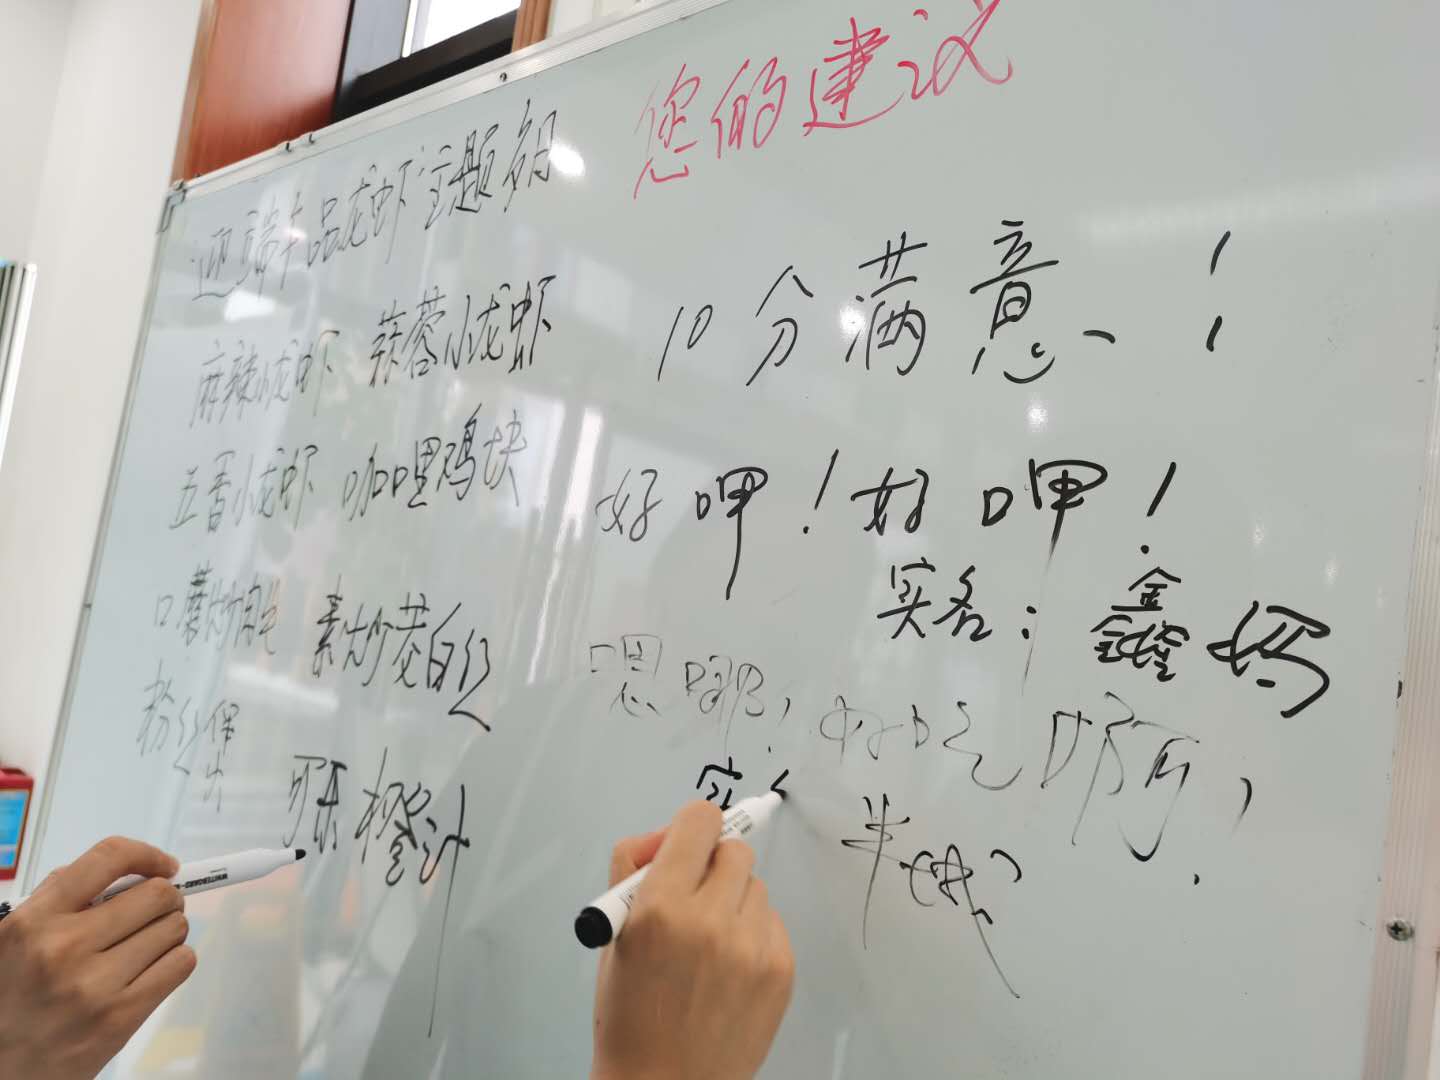 您的建议
迎端午品龙虾主题粥
麻辣小龙虾 蒜蓉小龙虾
五香小龙虾 咖哩鸡块
口蘑炒
素炒茭白丝
粉丝煲
可乐 橙汁
10分满意!
好呷!好呷!
实名:鑫鑫妈
嗯哪,好吃啊,
WHITEBOARD